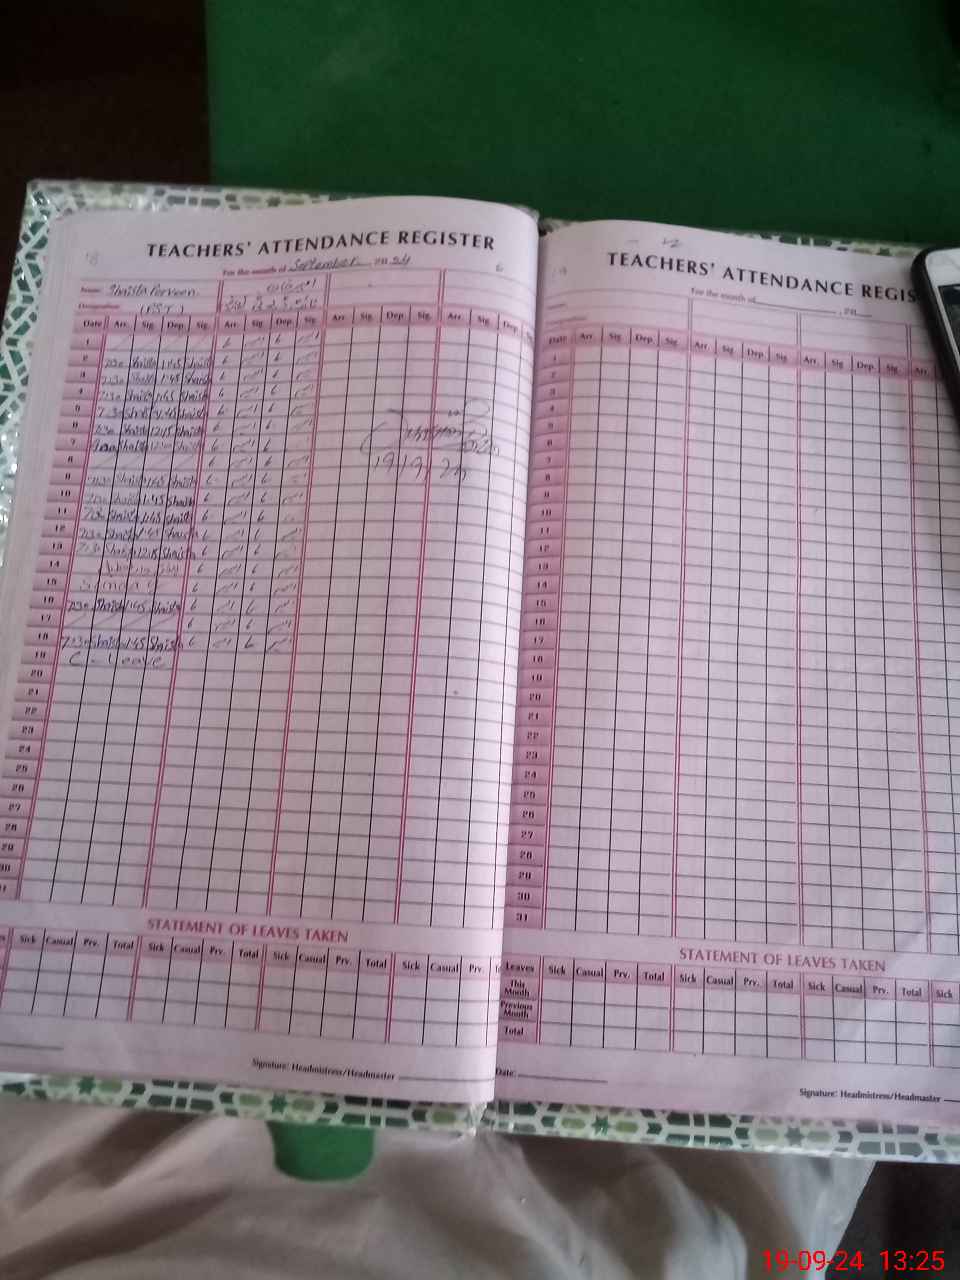 TEACHERS' ATTENDANCE REGISTER
For the month of September 2024
Name: Shaista Perveen
Designation: (PST)
Date Arr. Sig. Dep. Sig. Arr. Sig. Dep. Sig. Arr. Sig. Dep. Sig. Arr. Sig. Dep.
1
2 7:30 Shaista 1:45 Shaista
3 7:30 Shaista 1:45 Shaista
4 7:30 Shaista 1:45 Shaista
5 7:30 Shaista 1:45 Shaista
6 7:30 Shaista 12:15 Shaista
7
8
9 7:30 Shaista 1:45 Shaista
10 7:30 Shaista 1:45 Shaista
11 7:30 Shaista 1:45 Shaista
12 7:30 Shaista 1:45 Shaista
13 7:30 Shaista 12:15 Shaista
14
15 Sunday
16 7:30 Shaista 1:45 Shaista
17
18 7:30 Shaista 1:45 Shaista
19 C-Leave
20
21
22
23
24
25
26
27
28
29
30
STATEMENT OF LEAVES TAKEN
Sick Casual Prv. Total Sick Casual Prv. Total Sick Casual Prv. Total Sick Casual Prv.
Signature: Headmistress/Headmaster
TEACHERS' ATTENDANCE REGIS
For the month of , 20
Date Arr. Sig. Dep. Sig. Arr. Sig. Dep. Sig. Arr. Sig. Dep. Sig. Arr.
1
2
3
4
5
6
7
8
9
10
11
12
13
14
15
16
17
18
19
20
21
22
23
24
25
26
27
28
29
30
31
STATEMENT OF LEAVES TAKEN
Leaves Sick Casual Prv. Total Sick Casual Prv. Total Sick Casual Prv. Total Sick
This Month
Previous Month
Total
Date:
Signature: Headmistress/Headmaster
19-09-24 13:25